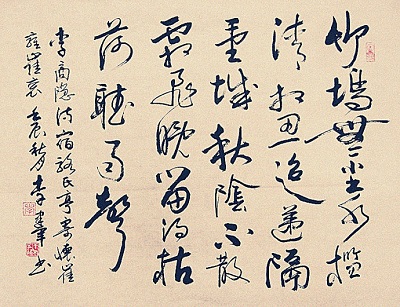 竹塢無尘水檻
清相思迢遞隔
重城秋陰不散
霜飛晚留得枯
荷聽雨聲
李商隐诗宿骆氏亭寄懷崔
雍崔衮壬辰秋月李書